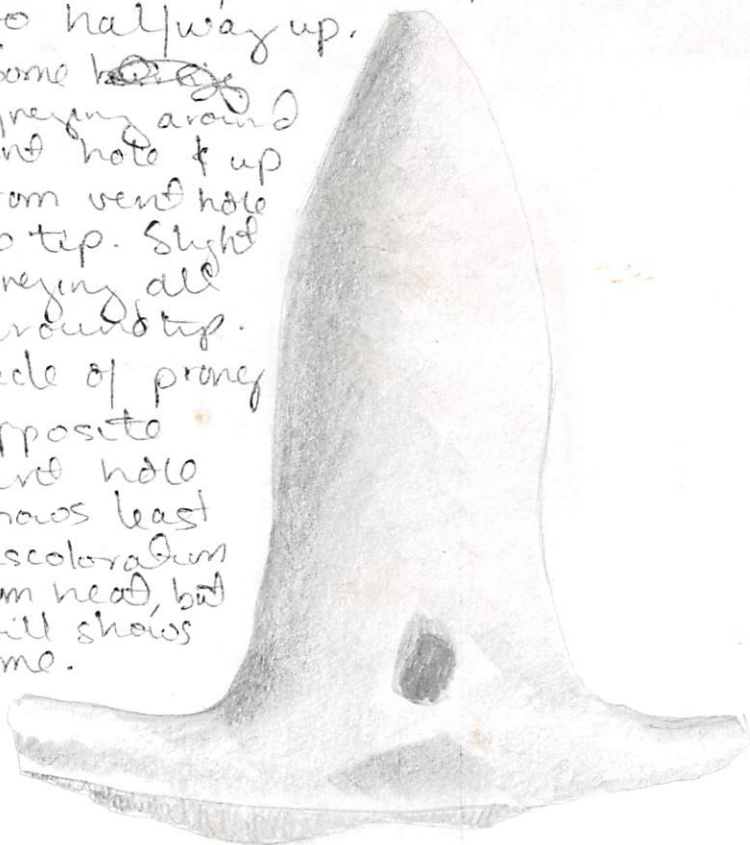 o halfway up.
some
greying around
nt hole & up
om vent hole
o tip. Slight
reying all
round tip.
ide of prong
pposite
ent hole
hows least
scoloration
om heat, but
till shows
me.